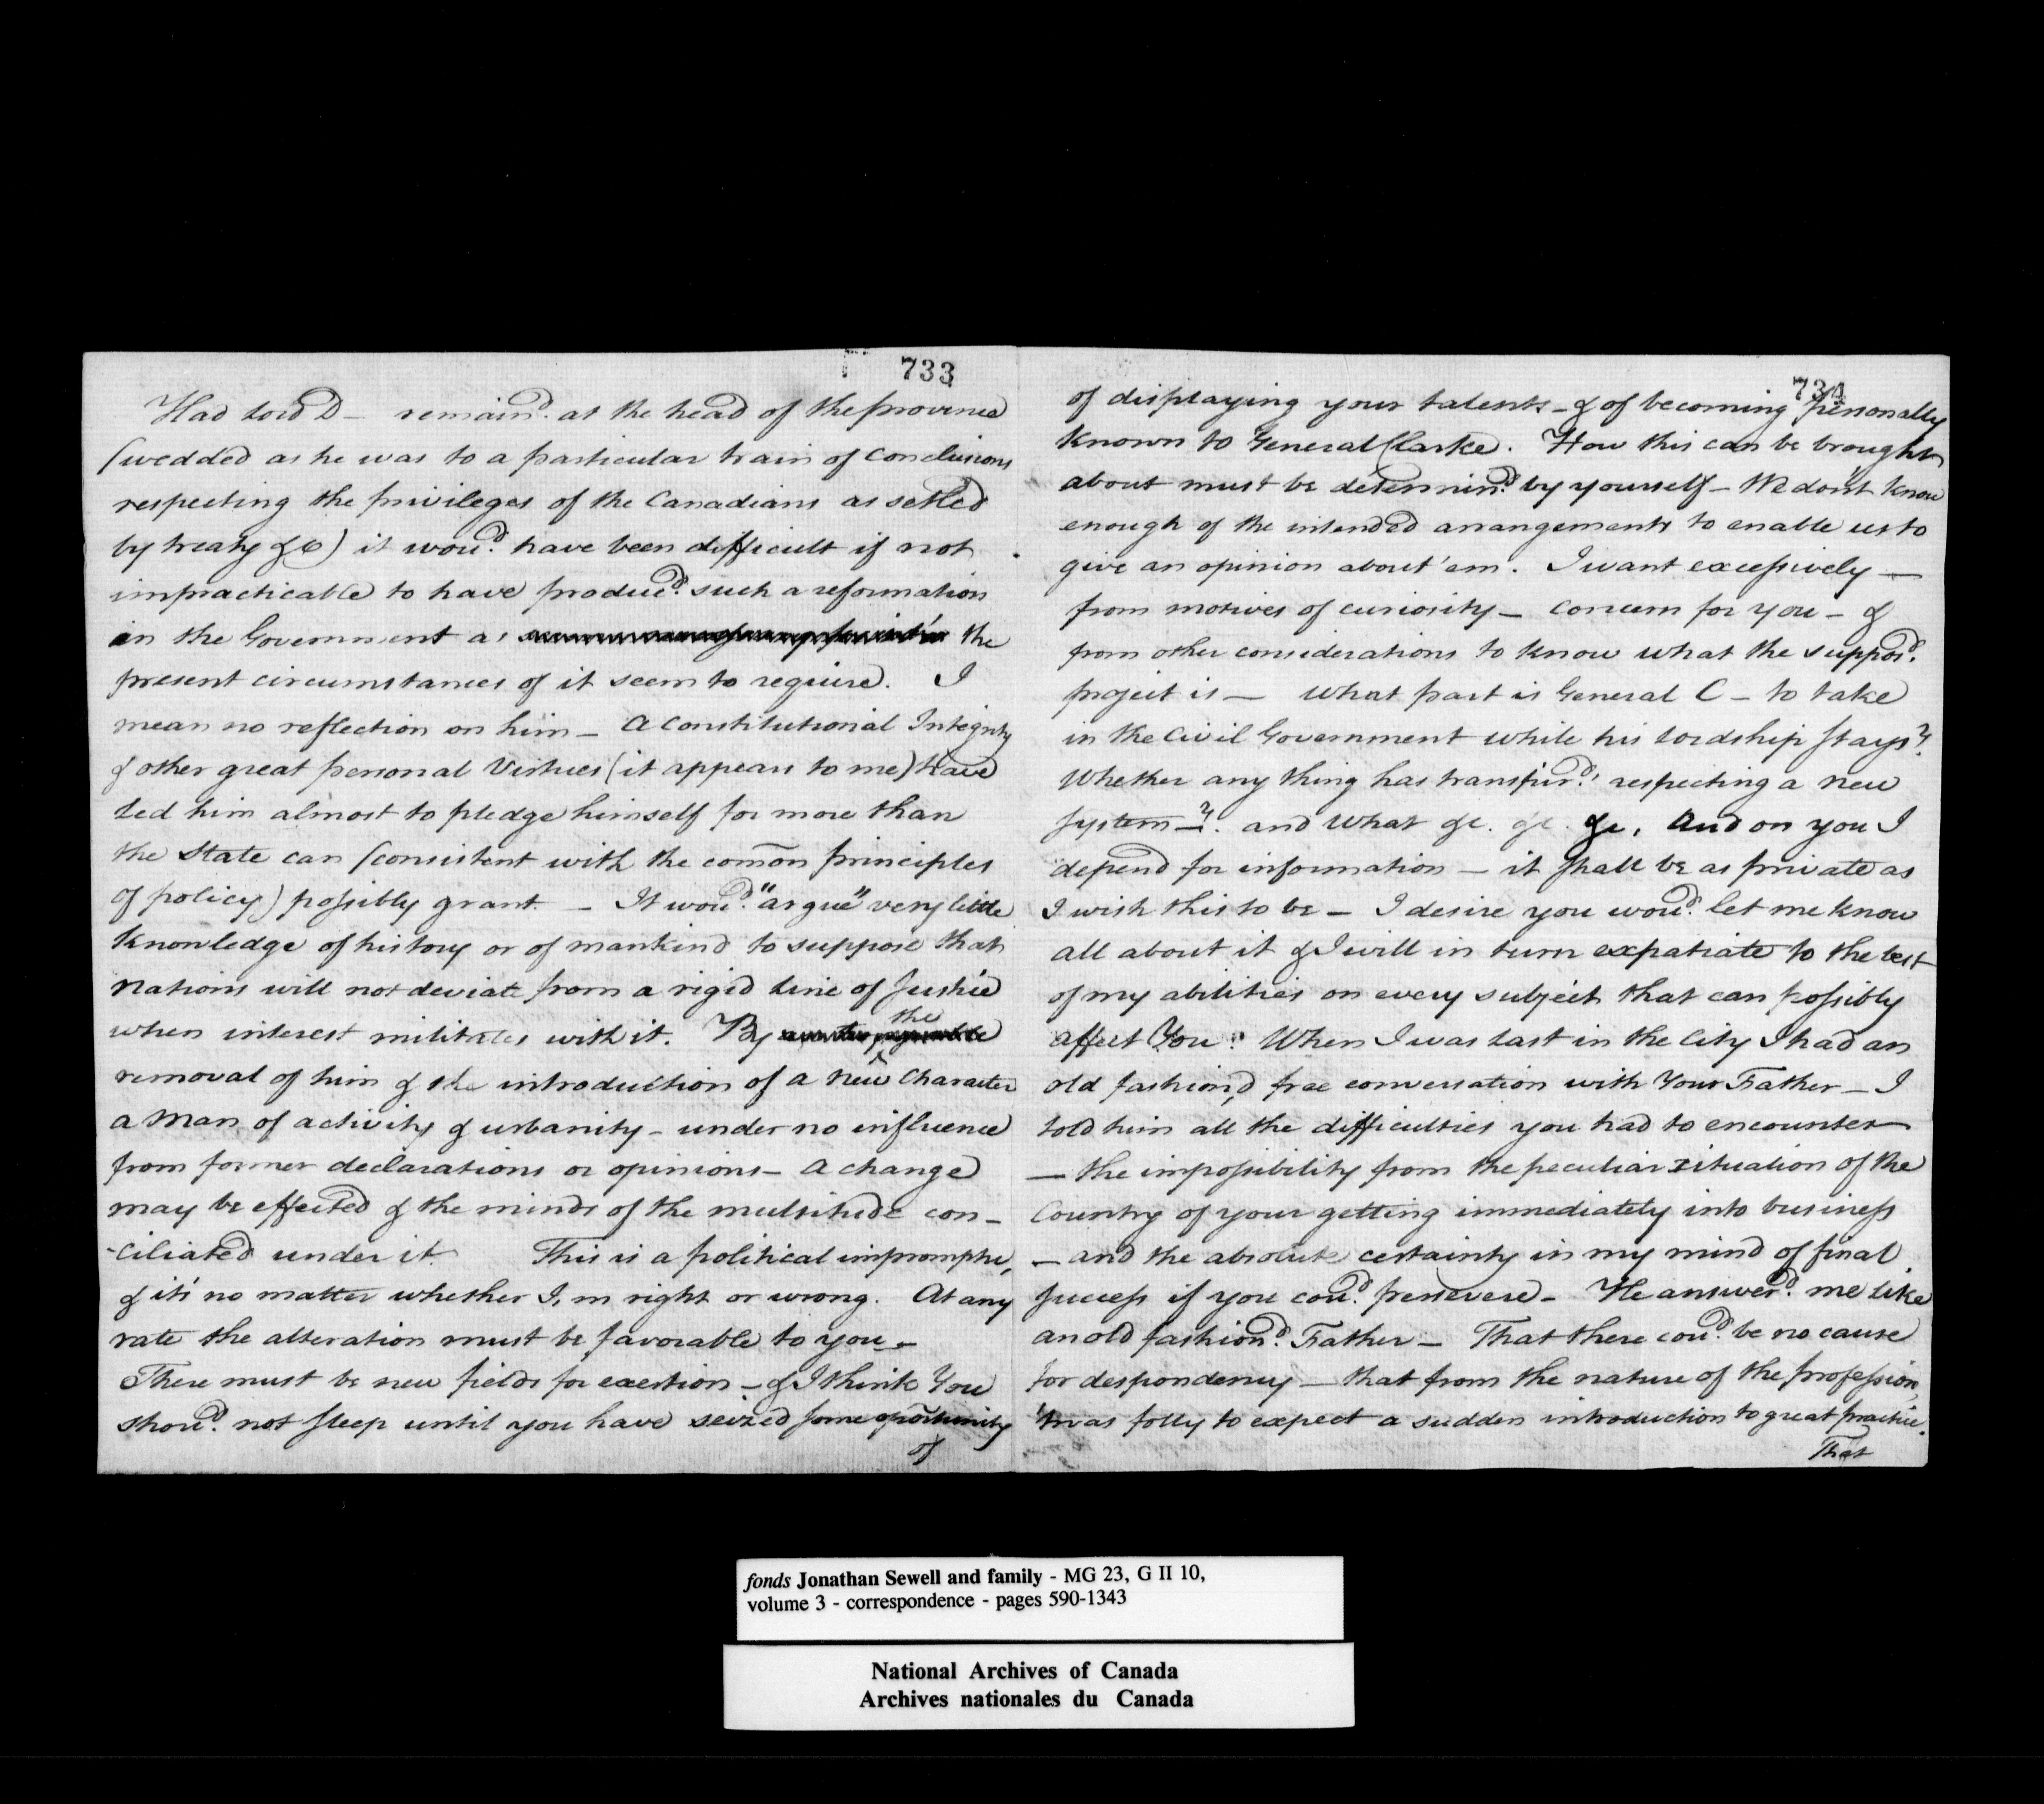 733
Had Lord D— remaind. at the head of the province
(wedded as he was to a particular train of conclusions
respecting the privileges of the Canadians as setled
by treaty &c) it woud. have been difficult if not
impracticable to have producd. such a reformation
in the Government as the
present circumstances of it seem to require. I
mean no reflection on him — a constitutional Integrity
& other great personal Virtues (it appears to me) have
led him almost to pledge himself for more than
the State can (consistent with the com̄on principles
of policy) possibly grant. — It woud. "argue" very little
knowledge of history or of mankind to suppose that
nations will not deviate from a rigid line of Justice
when interest militates with it. By the
removal of him & the introduction of a new Character
a Man of activity & urbanity — under no influence
from former declarations or opinions — a change
may be effected & the minds of the multitude con-
-ciliated under it. This is a political impromptu,
& it's no matter whether I,m right or wrong. At any
rate the alteration must be favorable to you —
There must be new fields for exertion — & I think You
shoud. not sleep until you have seized some opportunity
of
734
of displaying your talents — & of becoming personally
known to General Clarke. How this can be brought
about must be determind. by yourself — We don't know
enough of the intended arrangements to enable us to
give an opinion about 'em. I want excessively —
from motives of curiosity — concern for you — &
from other considerations to know what the supposd.
project is — What part is General C — to take
in the Civil Government while his Lordship stays?
Whether any thing has transpird. respecting a new
System —?. and What &c. &c. &c, And on you I
depend for information — it shall be as private as
I wish this to be — I desire you woud. let me know
all about it & I will in turn expatiate to the best
of my abilities on every subject that can possibly
affect You. When I was last in the City I had an
old fashion,d free conversation with Your Father — I
told him all the difficulties you had to encounter
— the impossibility from the peculiar situation of the
Country of your getting immediately into business
— and the absolute certainty in my mind of final
success if you coud. persevere — He answerd. me like
an old fashiond. Father — That there coud. be no cause
for despondency — that from the nature of the profession,
'twas folly to expect a sudden introduction to great practice.
That
fonds Jonathan Sewell and family - MG 23, G II 10,
volume 3 - correspondence - pages 590-1343
National Archives of Canada
Archives nationales du Canada